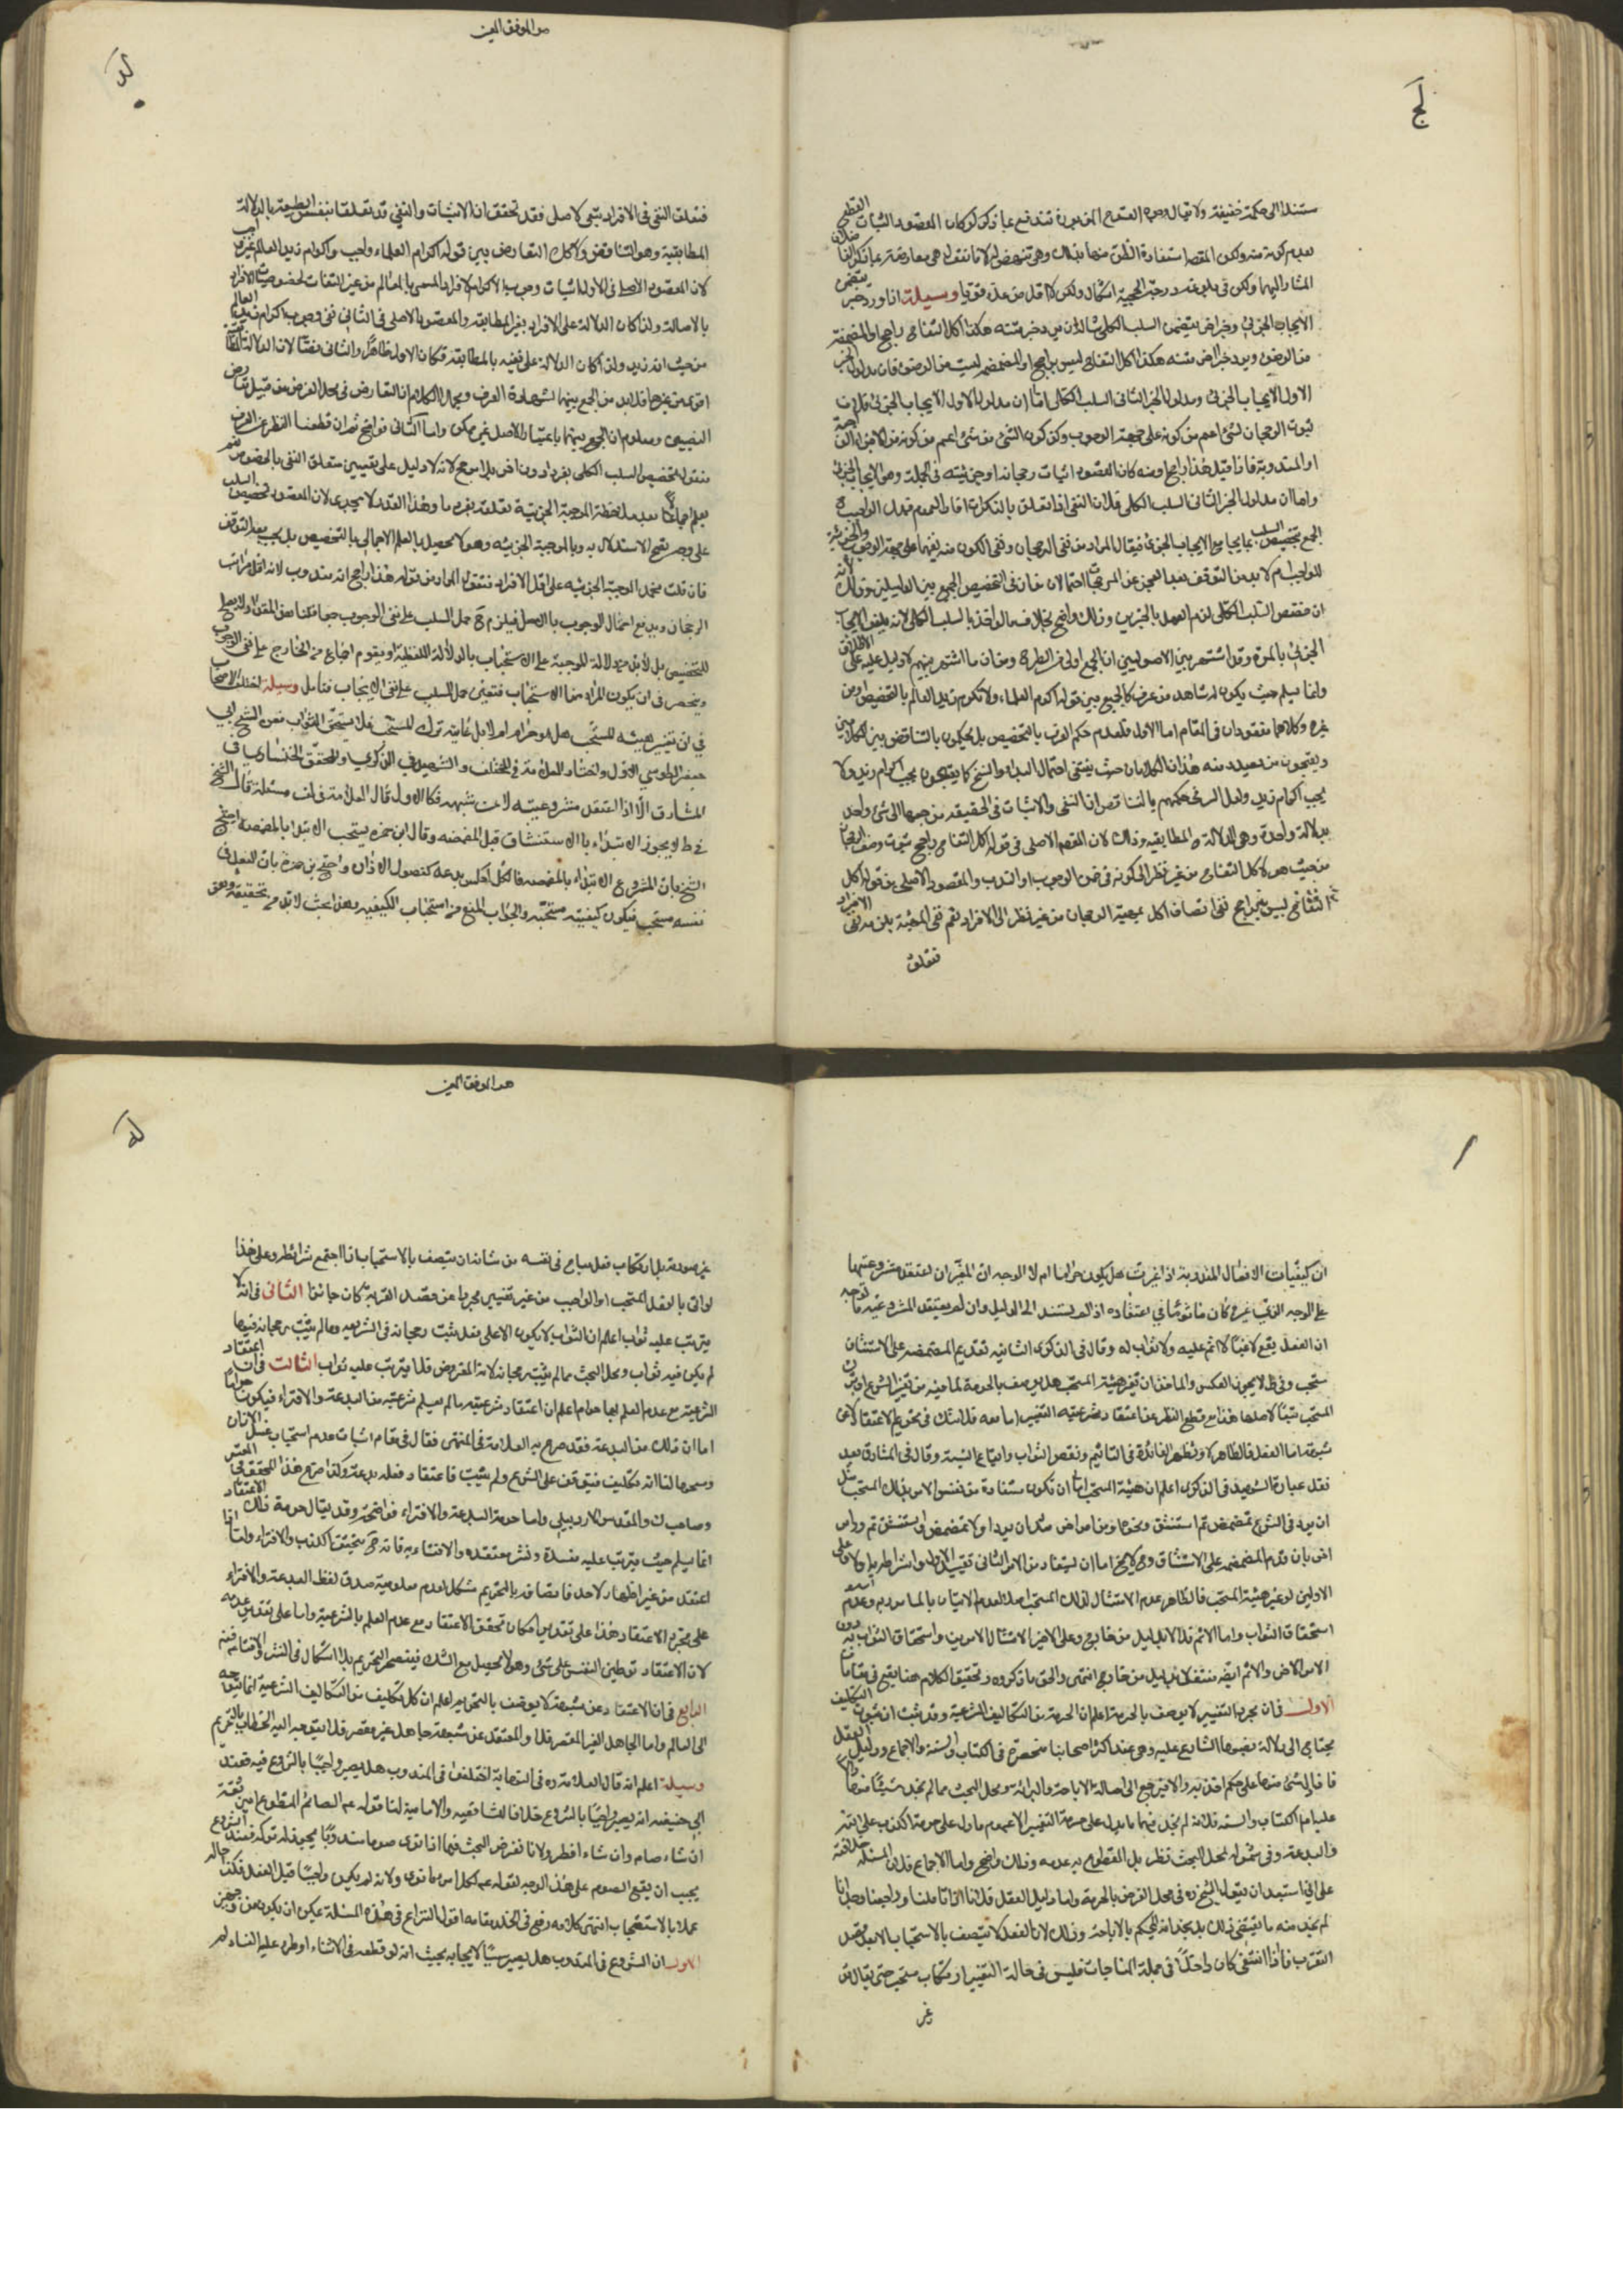 لج
مستندا الى حكمة خفيفة ولا تقال وجوه القدح المذبورة تندفع بما ذكر لو كان المقصود الثبات القطعى
المشار اليهما ولكن فى بلوغه درجة الحجية اشكال ولكن لا اقل من عده مؤيدا وسيلة اذا ورد خبر يتضمن
الايجاب الجزئى وخبر اخر يتضمن السلب الكلى مثاله ان يرد خبر متنه هكذا اكل التفاح راجح او المضمضة
من الوضوء ويرد خبر اخر متنه هكذا اكل التفاح ليس براجح او المضمضة ليست من الوضوء فان مدلول الخبر
الاول الايجاب الجزئى ومدلول الخبر الثانى السلب الكلى اما ان مدلول الاول الايجاب الجزئى فلان
ثبوت الرجحان لشئ اعم من كونه على جهة الوجوب وكذا كون الشئ من شئ اعم من كونه من الاجزاء الواجبة
او المندوبة فاذا قيل هذا راجح او منه كان المقصود اثبات رجحانه او جزئيته فى الجملة وهو الايجاب الجزئى
واما ان مدلول الخبر الثانى السلب الكلى فلان النفى اذا تعلق بالنكرات افاد العموم فهل الواجب ح
الجمع بتخصيص السلب بما يجامع الايجاب الجزئى فيقال المراد من نفى الرجحان ونفى الكون منه نفيهما على جهة الوجوب والجزئية
للواجب ام لا بد من التوقف بعد العجز عن المرجحات احتمالان من ان فى التخصيص الجمع بين الدليلين وذلك لانه
ان خصص السلب الكلى لزم العمل بالخبرين وذلك واضح بخلاف ما لو اخذ بالسلب الكلى لانه يلغى الايجاب
الجزئى بالمرة وقد اشتهر بين الاصوليين ان الجمع اولى من الطرح ومن ان ما اشتهر بينهم لا دليل عليه على الاطلاق
وانما يسلم حيث يكون له شاهد من عرف كالجمع بين قوله اكرم العلماء ولا تكرم زيدا العالم بالتخصيص او من
غيره وكلاهما مفقودان فى المقام اما الاول فلعدم حكم العرف بالتخصيص بل يحكمون بالتناقض بين الكلامين
ويقبحون من يصدر منه هذان الكلامان حيث ينتفى احتمال البداء والنسخ كما يقبحون يجب اكرام زيد ولا
يجب اكرام زيد ولعل السر فى حكمهم بالتناقض ان النفى والاثبات فى الحقيقة مرجعهما الى شئ واحد
بدلالة واحدة وهى الدلالة المطابقية وذلك لان المقصود الاصلى فى قوله اكل التفاح راجح ثبوت وصف الرجحان
من حيث هو لاكل التفاح من غير نظر الى كونه فى ضمن الوجوب او الندب والمقصود الاصلى من قوله اكل
التفاح ليس براجح نفى اتصاف اكل بمهية الرجحان من غير نظر الى الافراد نعم نفى المهية يلزمه نفى الافراد
فتعلق
هو الموفق المعين
لد
فتعلق النفى فى الافراد تبعى لا اصلى فقد تحقق ان الاثبات والنفى قد تعلقا بنفس الطبيعة بالدلالة
المطابقية وهو التناقض ولا كذلك التعارض بين قوله اكرام العلماء واجب واكرام زيد العالم غير واجب
لان المقصود الاصلى فى الاول اثبات وجوب الاكرام لافراد المسمى بالعالم من غير التفات لخصوصيات الافراد
بالاصالة وان كان الدلالة على الافراد بغير المطابقة والمقصود الاصلى فى الثانى نفى وجوب اكرام زيد العالم
من حيث انه زيد وان كان الدلالة على نفيه بالمطابقة فكان الاول ظاهرا والثانى نصا لان الدلالة اللفظية
اقوى من غيرها فلا بد من الجمع بينهما بشهادة العرف ومجال الكلام ان التعارض فى محل الفرض من قبيل تعارض
النصين ومعلوم ان الجمع بينهما باعتبار الاصل غير ممكن واما الثانى فواضح ثم ان قطعنا النظر عن العرف
فنقول تخصيص السلب الكلى بفرد دون اخر بلا مرجح لانه لا دليل على تعيين متعلق النفى بالخصوص نعم
يعلم اجمالا بعد ملاحظة الموجبة الجزئية تعلقه بفرد ما وهذا القدر لا يجدى لان المقصود تخصيص السلب
على وجه يصح الاستدلال به وبالموجبة الجزئية وهو لا يحصل بالعلم الاجمالى بالتخصيص بل يجب بعد التوقف
فان قلت نحمل الموجبة الجزئية على اقل الافراد فنقول المراد من قوله هذا راجح انه مندوب لانه اقل مراتب
الرجحان ويدفع احتمال الوجوب بالاصل فيلزم ح حمل السلب على نفى الوجوب جمعا
للتخصيص بل لا بد من دلالة للموجبة على الاستحباب بالدلالة اللفظية او يقوم اجماع من الخارج على نفى الوجوب
وينحصر فى ان يكون المراد منها الاستحباب فتعين حمل السلب على نفى الايجاب فتأمل وسيلة اختلف الاصحاب
فى ان تغيير هيئة المستحب هل هو حرام ام لا بل غايته ترك المستحب فلا يستحق الثواب فعن الشيخ ابى
جعفر الطوسى الاول واختاره العلامة فى المختلف والشهيد فى الذكرى والمحقق الخنسارى فى
المشارق الا اذا اعتقد مشروعيته لاعن شبهه فكالاول قال العلامة فى لف مسئلة قال الشيخ
فى ط لا يجوز الابتداء بالاستنشاق قبل المضمضه وقال ابن حمزه يستحب الابتداء بالمضمضه احتج
الشيخ بان المشروع الابتداء بالمضمضه فالعكس بدعه كفصول الاذان واحتج بن حمزه بان الفعل فى
نفسه مستحب فيكون كيفيته مستحبه والجواب المنع من استحباب الكيفيه وهذا بحث لا بد من تحقيقه وهو
ان كيفيات الافعال المندوبة اذا غيرت هل يكون حراما ام لا الوجه ان المغير ان اعتقد مشروعيتها
على الوجه الذى غيره كان مأثوما فى اعتقاده اذا لم يستند الى الدليل وان لم يعتقد المشروعيه فالوجه
ان الفعل يقع لاغيا لا اثم عليه ولا ثواب له وقال فى الذكرى الثانيه تقديم المضمضه على الاستنشاق
مستحب وفى ط لا يجوز العكس والمأخذ ان تغير هيئة المستحب هل يوصف بالحرمة لما فيه من تغيير الشرع او يترك
المستحب تبعا لاصلها هذا مع قطع النظر عن اعتقاد شرعيه التغيير اما معه فلا شك فى تحريم الاعتقاد لا عن
شبهة اما الفعل فالظاهر لا وتظهر الفائدة فى التاثيم ونقص الثواب وايقاع النية وقال فى المشارق بعد
نقل عبارة الشهيد فى الذكرى اعلم ان هيئة المستحب اما ان تكون مستفادة من نفس الامر بذلك المستحب مثل
ان يرد فى الشرع تمضمض ثم استنشق ونحوها ومن امر اخر مثل ان يرد اولا تمضمض واستنشق ثم ورد امر
اخر بان قدم المضمضه على الاستنشاق وح لا يخلو اما ان يستفاد من الامر الثانى تقييد الاول واشتراطه به او لا فعلى
الاولين لو غير هيئة المستحب فالظاهر عدم الامتثال لذلك المستحب اصلا لعدم الاتيان بالمأمور به وعدم
استحقاق الثواب واما الاثم فلا الا بدليل من خارج وعلى الاخير الامتثال لاحد الامرين واستحقاق الثواب به دون
الامر الاخر والاثم ايضا منتف الا بدليل من خارج انتهى والحق ما ذكروه وتحقيق الكلام هنا يقع فى مقامات
الاول فى ان مجرد التغيير لا يوصف بالحرمة اعلم ان الحرمة من التكاليف الشرعية وقد ثبت ان ثبوت التكليف
يحتاج الى دلالة نصبها الشارع عليه وهى عند اكثر اصحابنا منحصرة فى الكتاب والسنة والاجماع ودليل العقل
فان لم يدل شئ منها على حكم اخذ به والا فيرجع الى اصالة الاباحة والبرائة ومحل البحث مما لم نجد شيئا منها دالا
عليه اما الكتاب والسنه فلانه لم نجد فيهما ما يدل على حرمة التغيير الا عموم ما دل على حرمة الكذب على الله
والبدعة وفى شموله لمحل البحث نظر بل المقطوع به عدمه وذلك واضح واما الاجماع فلان المسئلة خلافية
على انى استبعد ان يقول الشيخ ره فى محل الفرض بالحرمة واما دليل العقل فلانا اذا تأملنا وراجعنا وجداننا
لم نجد منه ما يقتضى ذلك بل نجد انه يحكم بالاباحة وذلك لان الفعل لا يتصف بالاستحباب الا بعد قصد
التقرب فاذا انتفى كان داخلا فى جملة المباحات فليس فى حالة التغيير ارتكاب مستحب حتى يقال قد
غير
هو الموفق المعين
له
غير صورته بل ارتكاب فعل مباح فى نفسه من شانه ان يتصف بالاستحباب اذا اجتمع شرائطه وعلى هذا
لو اتى بالفعل المستحب او الواجب من غير تغيير مجردا عن قصد القربة كان جائزا الثانى فى انه لا
يترتب عليه ثواب اعلم ان الثواب لا يكون الا على فعل يثبت رجحانه فى الشريعه وما لم يثبت رجحانه فيها
لم يكن فيه ثواب ومحل البحث مما لم يثبت رجحانه لانه المفروض فلا يترتب عليه ثواب الثالث فى ان اعتقاد
الشرعية مع عدم العلم بها حرام اعلم ان اعتقاد شرعيه ما لم يعلم شرعيته من البدعة والافتراء فيكون حراما
اما ان ذلك من البدعة فقد صرح به العلامة فى المنتهى فقال فى مقام اثبات عدم استحباب غسل الاذن
ومسحها لنا انه تكليف فيتوقف على الشرع ولم يثبت فاعتقاد فعله بدعة وكذا صرح بهذا المحقق فى المعتبر
وصاحب ك والمقدس الاردبيلى واما حرمة البدعة والافتراء فواضحة وقد يقال حرمة ذلك الاعتقاد
انما يسلم حيث يترتب عليه مفسدة ونشر معتقده والافتاء به فانه ح يتحقق الكذب والافتراء واما اذا
اعتقد من غير اظهار لاحد فاتصافه بالتحريم مشكل لعدم معلومية صدق لفظ البدعة والافتراء
على مجرد الاعتقاد هذا على تقدير امكان تحقق الاعتقاد مع عدم العلم بالشرعية واما على تقدير عدمه
لان الاعتقاد توطين النفس على شئ وهو لا يحصل مع الشك فينحصر التحريم بلا اشكال فى النشر والافتاء فيه
الرابع فى ان الاعتقاد عن شبهة لا يوصف بالتحريم اعلم ان كل تكليف من التكاليف الشرعية انما يتوجه
الى العالم واما الجاهل الغير المقصر فلا والمعتقد عن شبهة جاهل غير مقصر فلا يتوجه اليه الخطاب بالتحريم
وسيلة اعلم انه قال العلامة ره فى النهاية اختلفوا فى المندوب هل يصير واجبا بالشروع فيه فعند
ابى حنيفه انه يصير واجبا بالشروع خلافا للشافعيه والامامية لنا قوله عم الصائم المتطوع امير نفسه
ان شاء صام وان شاء افطر ولانا نفرض البحث فيما اذا نوى صوما مندوبا يجوز له تركه فبعد الشروع
يجب ان يقع الصوم على هذا الوجه لقوله عم لكل امرء ما نوى ولانه لم يكن واجبا قبل الفعل فكذا حاله
عملا بالاستصحاب انتهى كلامه رفع فى الخلد مقامه اقول النزاع فى هذه المسئلة يمكن ان يكون من وجهين
الاول ان الشروع فى المندوب هل يصير سببا لايجابه بحيث انه لو قطعه فى الاثناء او طرء عليه الفساد لم